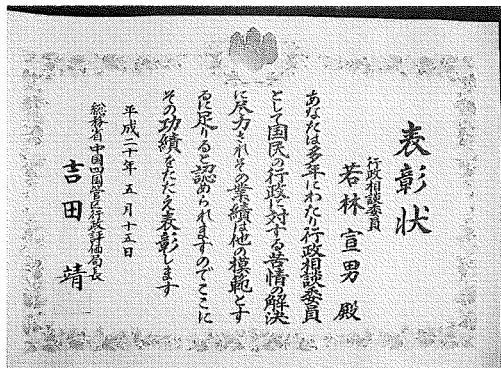 表彰状
行政相談委員
若林宣男 殿
あなたは多年にわたり行政相談委員
として国民の行政に対する苦情の解決
に尽力されその業績は他の模範とす
るに足りると認められますのでここに
その功績をたたえ表彰します
平成二十年五月十五日
総務省中国四国管区行政評価局長
吉田 靖